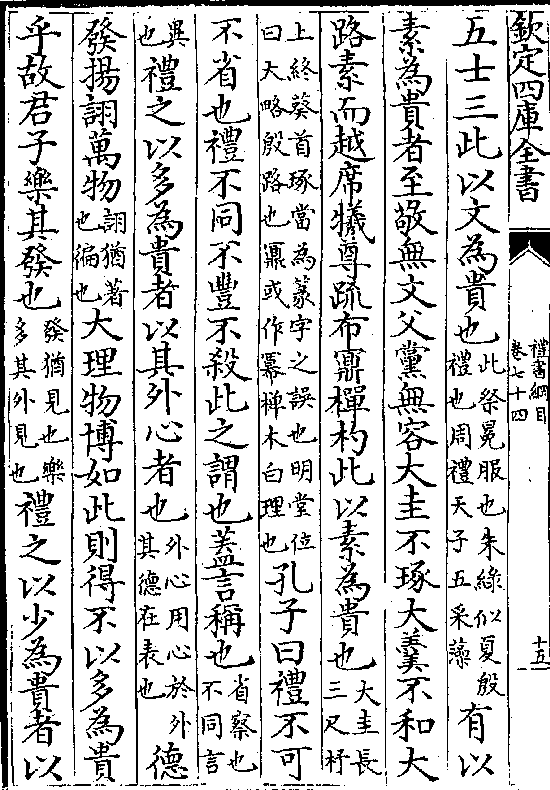 欽定四庫全書
禮書綱目
卷七十四
十五
五士三此以文為貴也此祭冕服也朱綠似夏殷禮也周禮天子五采藻有以
素為貴者至敬無文父黨無容大圭不琢大羹不和大
路素而越席犧尊疏布鼏樿杓此以素為貴也大圭長三尺杼
上終葵首琢當為篆字之誤也明堂位曰大路殷路也鼏或作冪樿木白理也孔子曰禮不可
不省也禮不同不豐不殺此之謂也蓋言稱也省察也不同言
異也禮之以多為貴者以其外心者也外心用心於外其德在表也德
發揚詡萬物詡猶著也徧也大理物博如此則得不以多為貴
乎故君子樂其發也發猶見也樂多其外見也禮之以少為貴者以